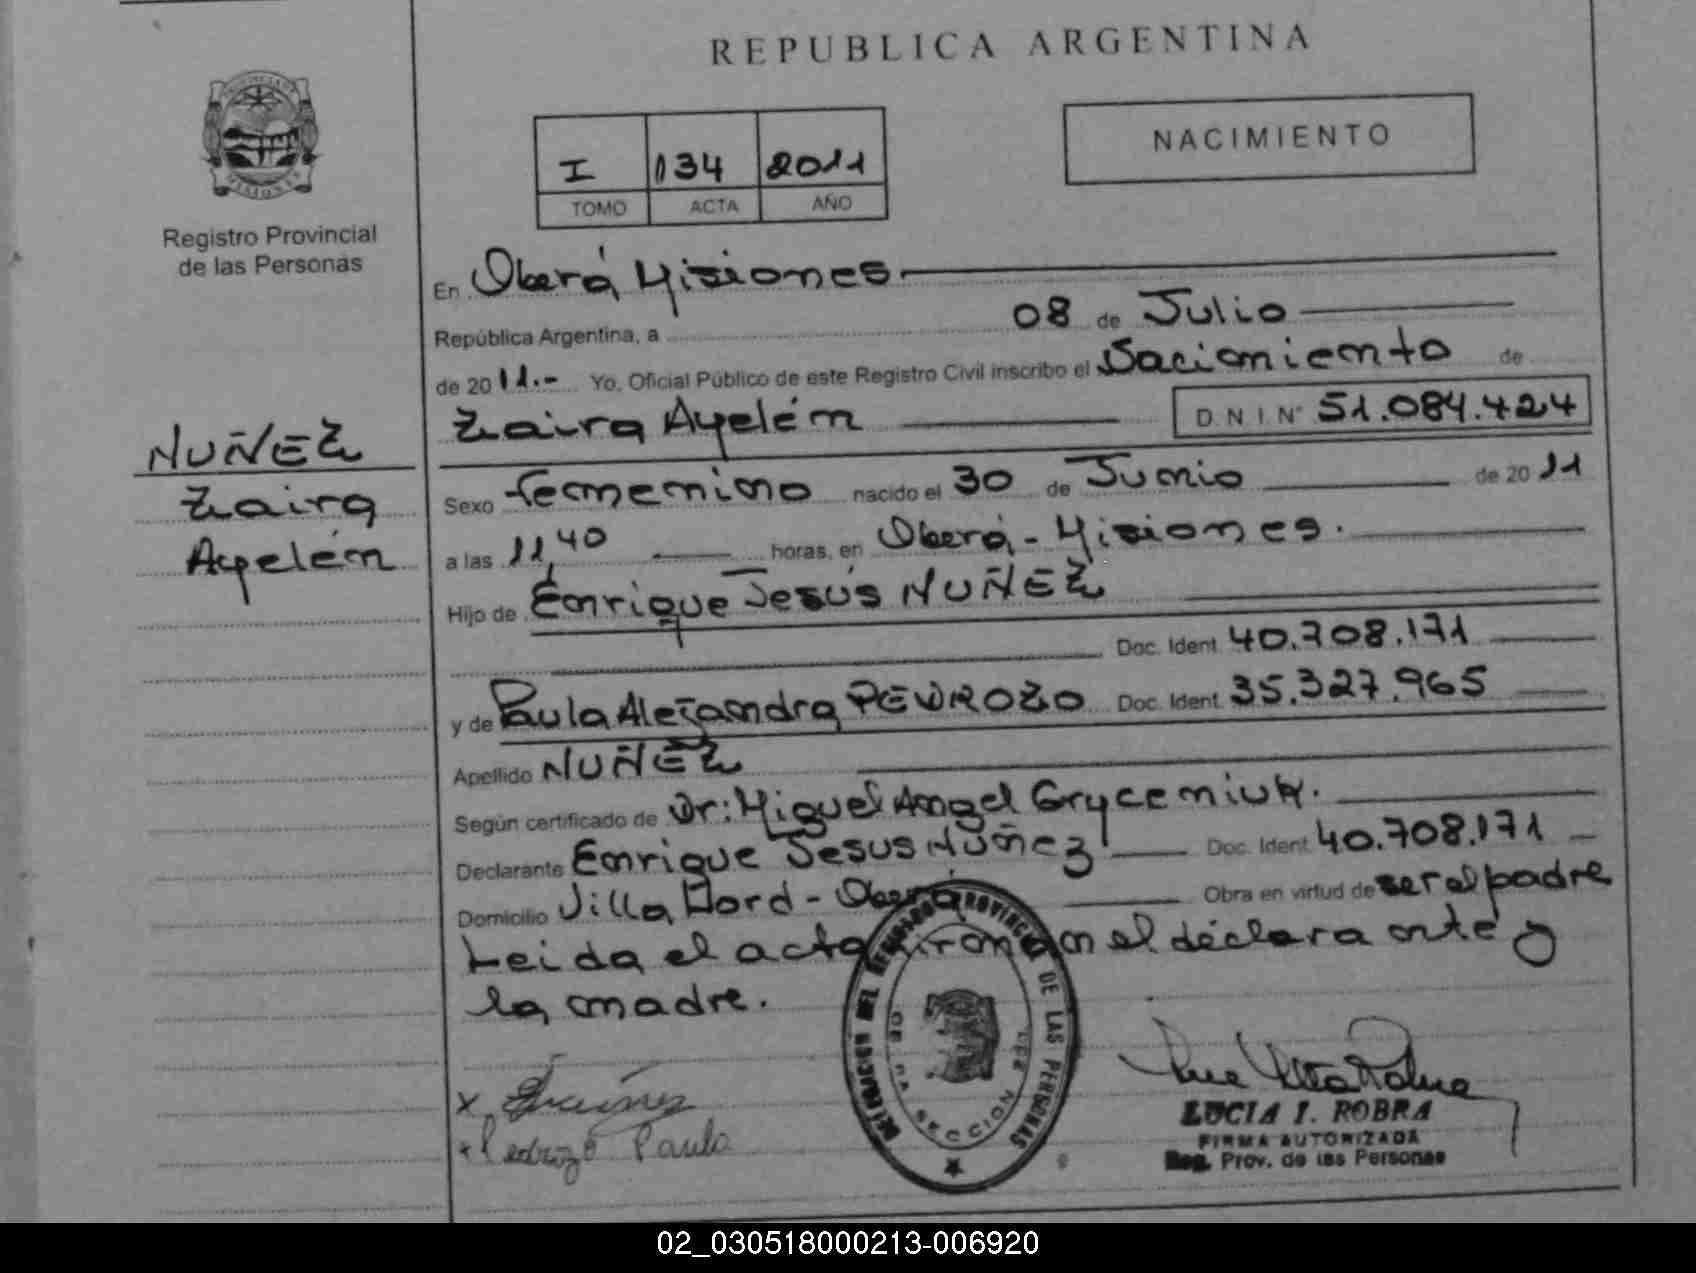 REPUBLICA ARGENTINA
PROVINCIA DE MISIONES
Registro Provincial
de las Personas
I 134 2011
TOMO ACTA AÑO
NACIMIENTO
En Oberá Misiones
República Argentina, a 08 de Julio
de 20 11.- Yo, Oficial Público de este Registro Civil inscribo el Nacimiento de
Zaira Ayelén D.N.I. N° 51.084.424
NUÑEZ
Zaira
Ayelén
Sexo femenino nacido el 30 de Junio de 20 11
a las 11,40 horas, en Oberá - Misiones.
Hijo de Enrique Jesús NUÑEZ
Doc. Ident. 40.708.171
y de Paula Alejandra PEDROZO Doc. Ident. 35.327.965
Apellido NUÑEZ
Según certificado de Dr: Miguel Angel Gryceniuk.
Declarante Enrique Jesus Nuñez Doc. Ident. 40.708.171
Domicilio Villa Hord - Oberá Obra en virtud de ser el padre
Leida el acta firman el declarante y
la madre.
DELEGACION DEL REGISTRO PROVINCIAL DE LAS PERSONAS
SECCION
x Pedrozo Paula
LUCIA I. ROBRA
FIRMA AUTORIZADA
Reg. Prov. de las Personas
02_030518000213-006920